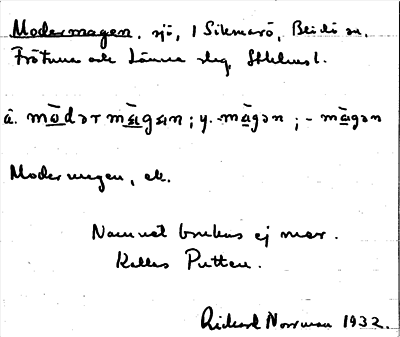 Modermagen, sjö, 1 Silemarö, Beidö sn.
Frötuna och Länna slag, Sthlms l.
å. mōdər māgɛn; y. -māgən; - māgən
Modermagen, ek.
Namnet brukas ej mer.
Kallas Putten.
Rickard Norrman 1932.